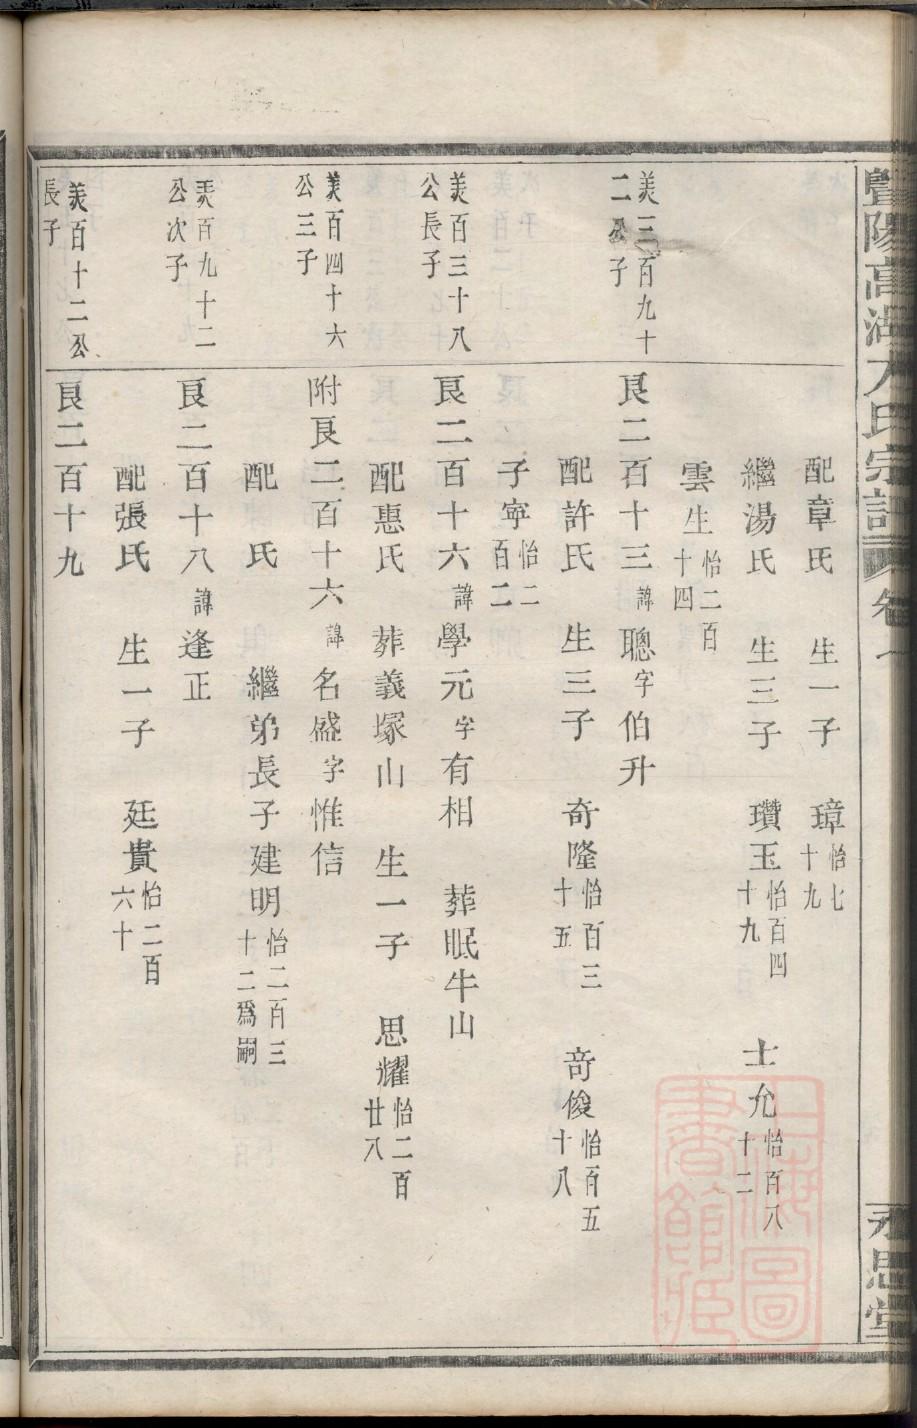 暨陽高湖方氏宗譜 卷一 永思堂
配章氏 生一子 璋怡七十九
繼湯氏 生三子 瓚玉怡百四十九 士允怡百八十二
雲生怡二百十四
美三百九十二公子
艮二百十三諱聰字伯升
配許氏 生三子 奇隆怡百三十五 奇俊怡百五十八
子寧怡二百二
美百三十八公長子
艮二百十六諱學元字有相 葬眠牛山
配惠氏 葬義塚山 生一子 思耀怡二百廿八
美百四十六公三子
附艮二百十六諱名盛字惟信
配 氏 繼弟長子建明怡二百三十二為嗣
美百九十二公次子
艮二百十八諱逢正
配張氏 生一子 廷貴怡二百六十
美百十二公長子
艮二百十九
上海圖書館藏